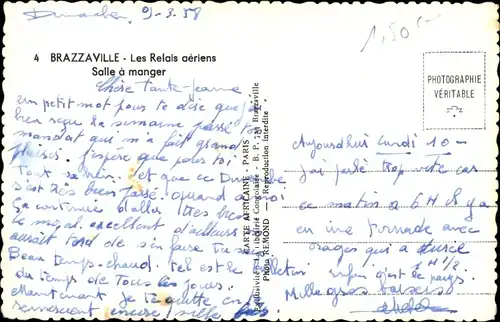 Dimanche 9-3-58
1,50
4 BRAZZAVILLE - Les Relais aériens
Salle à manger
Chère tante Jeanne
un petit mot pour te dire que j'ai
bien reçu la semaine passé ton
mandat qui m'a fait grand
plaisir. J'espère que pour toi
tout va bien et que ce Dimanche
s'est très bien passé. quand à moi
ça continue d'aller très bien
le moral excellent d'ailleurs il
aurait tord de s'en faire
Beau temps chaud tel est le
du temps de tous les jours.
Maintenant je te quitte en
remerciant encore mille fois
CARTE AFRICAINE - PARIS
Exclusivité: La Librairie Congolaise - B. P. Brazzaville
Photo REMOND - Reproduction interdite
PHOTOGRAPHIE
VÉRITABLE
Aujourd'hui lundi 10 -
J'ai parlé trop vite car
ce matin à 6H il y a
eu une tornade avec
orages qui a durée
1H1/2
enfin c'est le pays.
Mille gros baisers